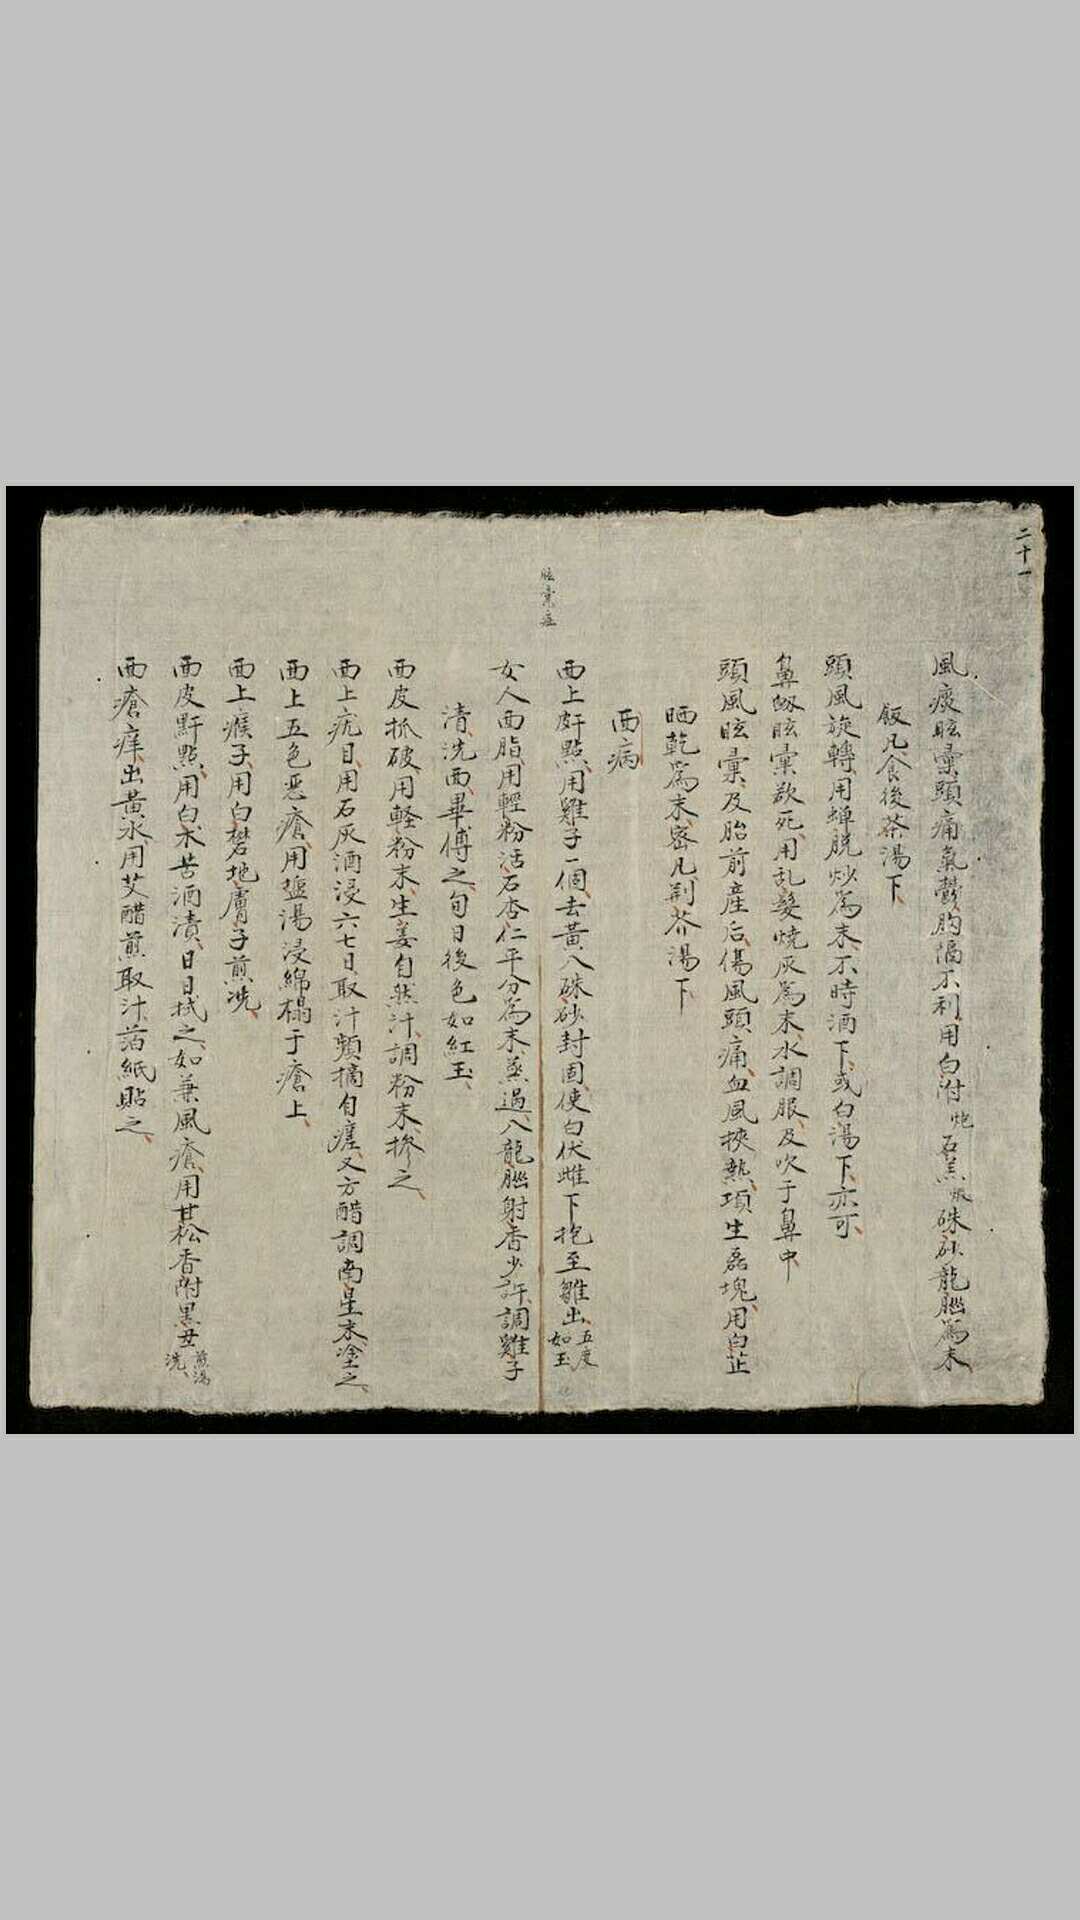 二十一
眩彙症
風痰眩彙頭痛氣鬱胸膈不利用白附炮石羔煅硃砂龍腦為末
飯凡食後茶湯下
頭風旋轉用蟬脫炒為末不時酒下或白湯下亦可
鼻衂眩彙欲死用乱髮燒灰為末水調服及吹于鼻中
頭風眩彙及胎前産后傷風頭痛血風挾熱項生磊塊用白芷
晒乾為末密凡荆芥湯下
面病
面上皯點用雞子一個去黃入硃砂封固使白伏雌下抱至雛出五度如玉
女人面脂用輕粉活石杏仁平分為末蒸過入龍腦射香少許調雞子
清洗面畢傅之旬日後色如紅玉
面皮抓破用軽粉末生姜自然汁調粉末摻之
面上疣目用石灰酒浸六七日取汁頻摘自瘥又方醋調南星末塗之
面上五色恶瘡用塩湯浸綿榻于瘡上
面上瘊子用白礬地膚子煎洗
面皮䵟點用白朮苦酒漬日日拭之如兼風瘡用甘松香附黒丑煎湯洗
面瘡痒出黃水用艾醋煎取汁箔紙貼之